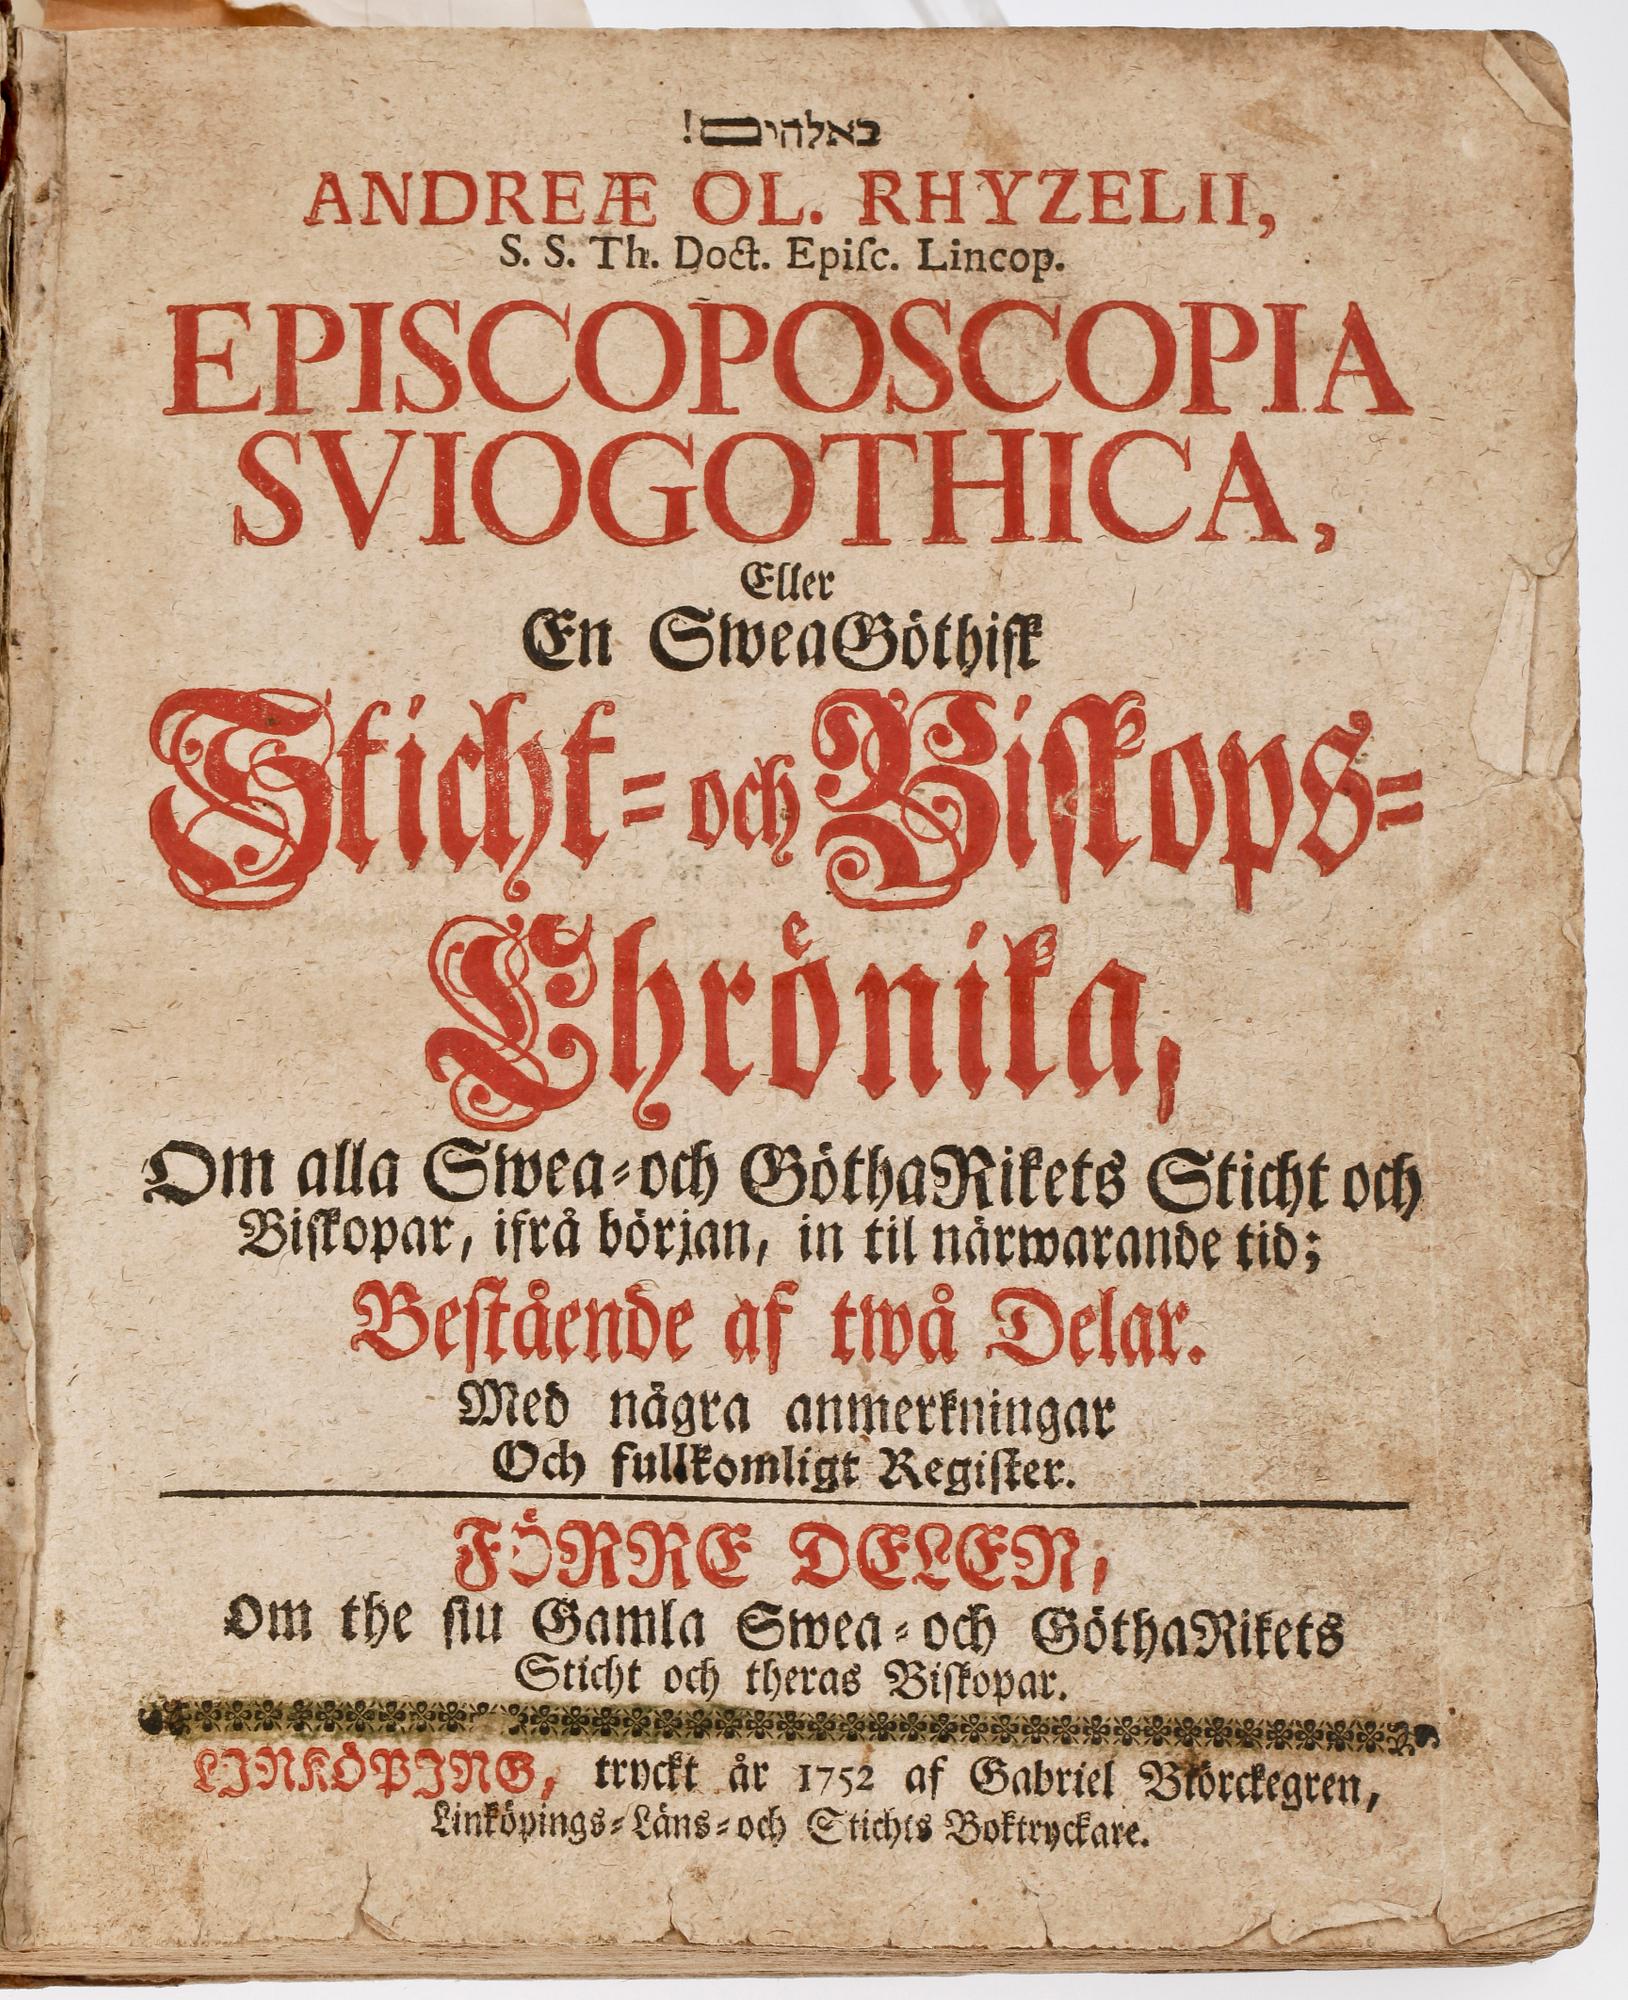 באלהים!
ANDREÆ OL. RHYZELII,
S. S. Th. Doct. Epiſc. Lincop.
EPISCOPOSCOPIA
SVIOGOTHICA,
Eller
En SweaGöthiſk
Sticht- och Biſkops-
Chrönika,
Om alla Swea-och GöthaRikets Sticht och
Biſkopar, ifrå början, in til närwarande tid;
Beſtående af twå Delar.
Med några anmerkningar
Och fullkomligt Regiſter.
FÖRRE DELEN,
Om the ſiu Gamla Swea-och GöthaRikets
Sticht och theras Biſkopar.
LINKÖPING, tryckt år 1752 af Gabriel Biörckegren,
Linköpings-Läns-och Stichts Boktryckare.